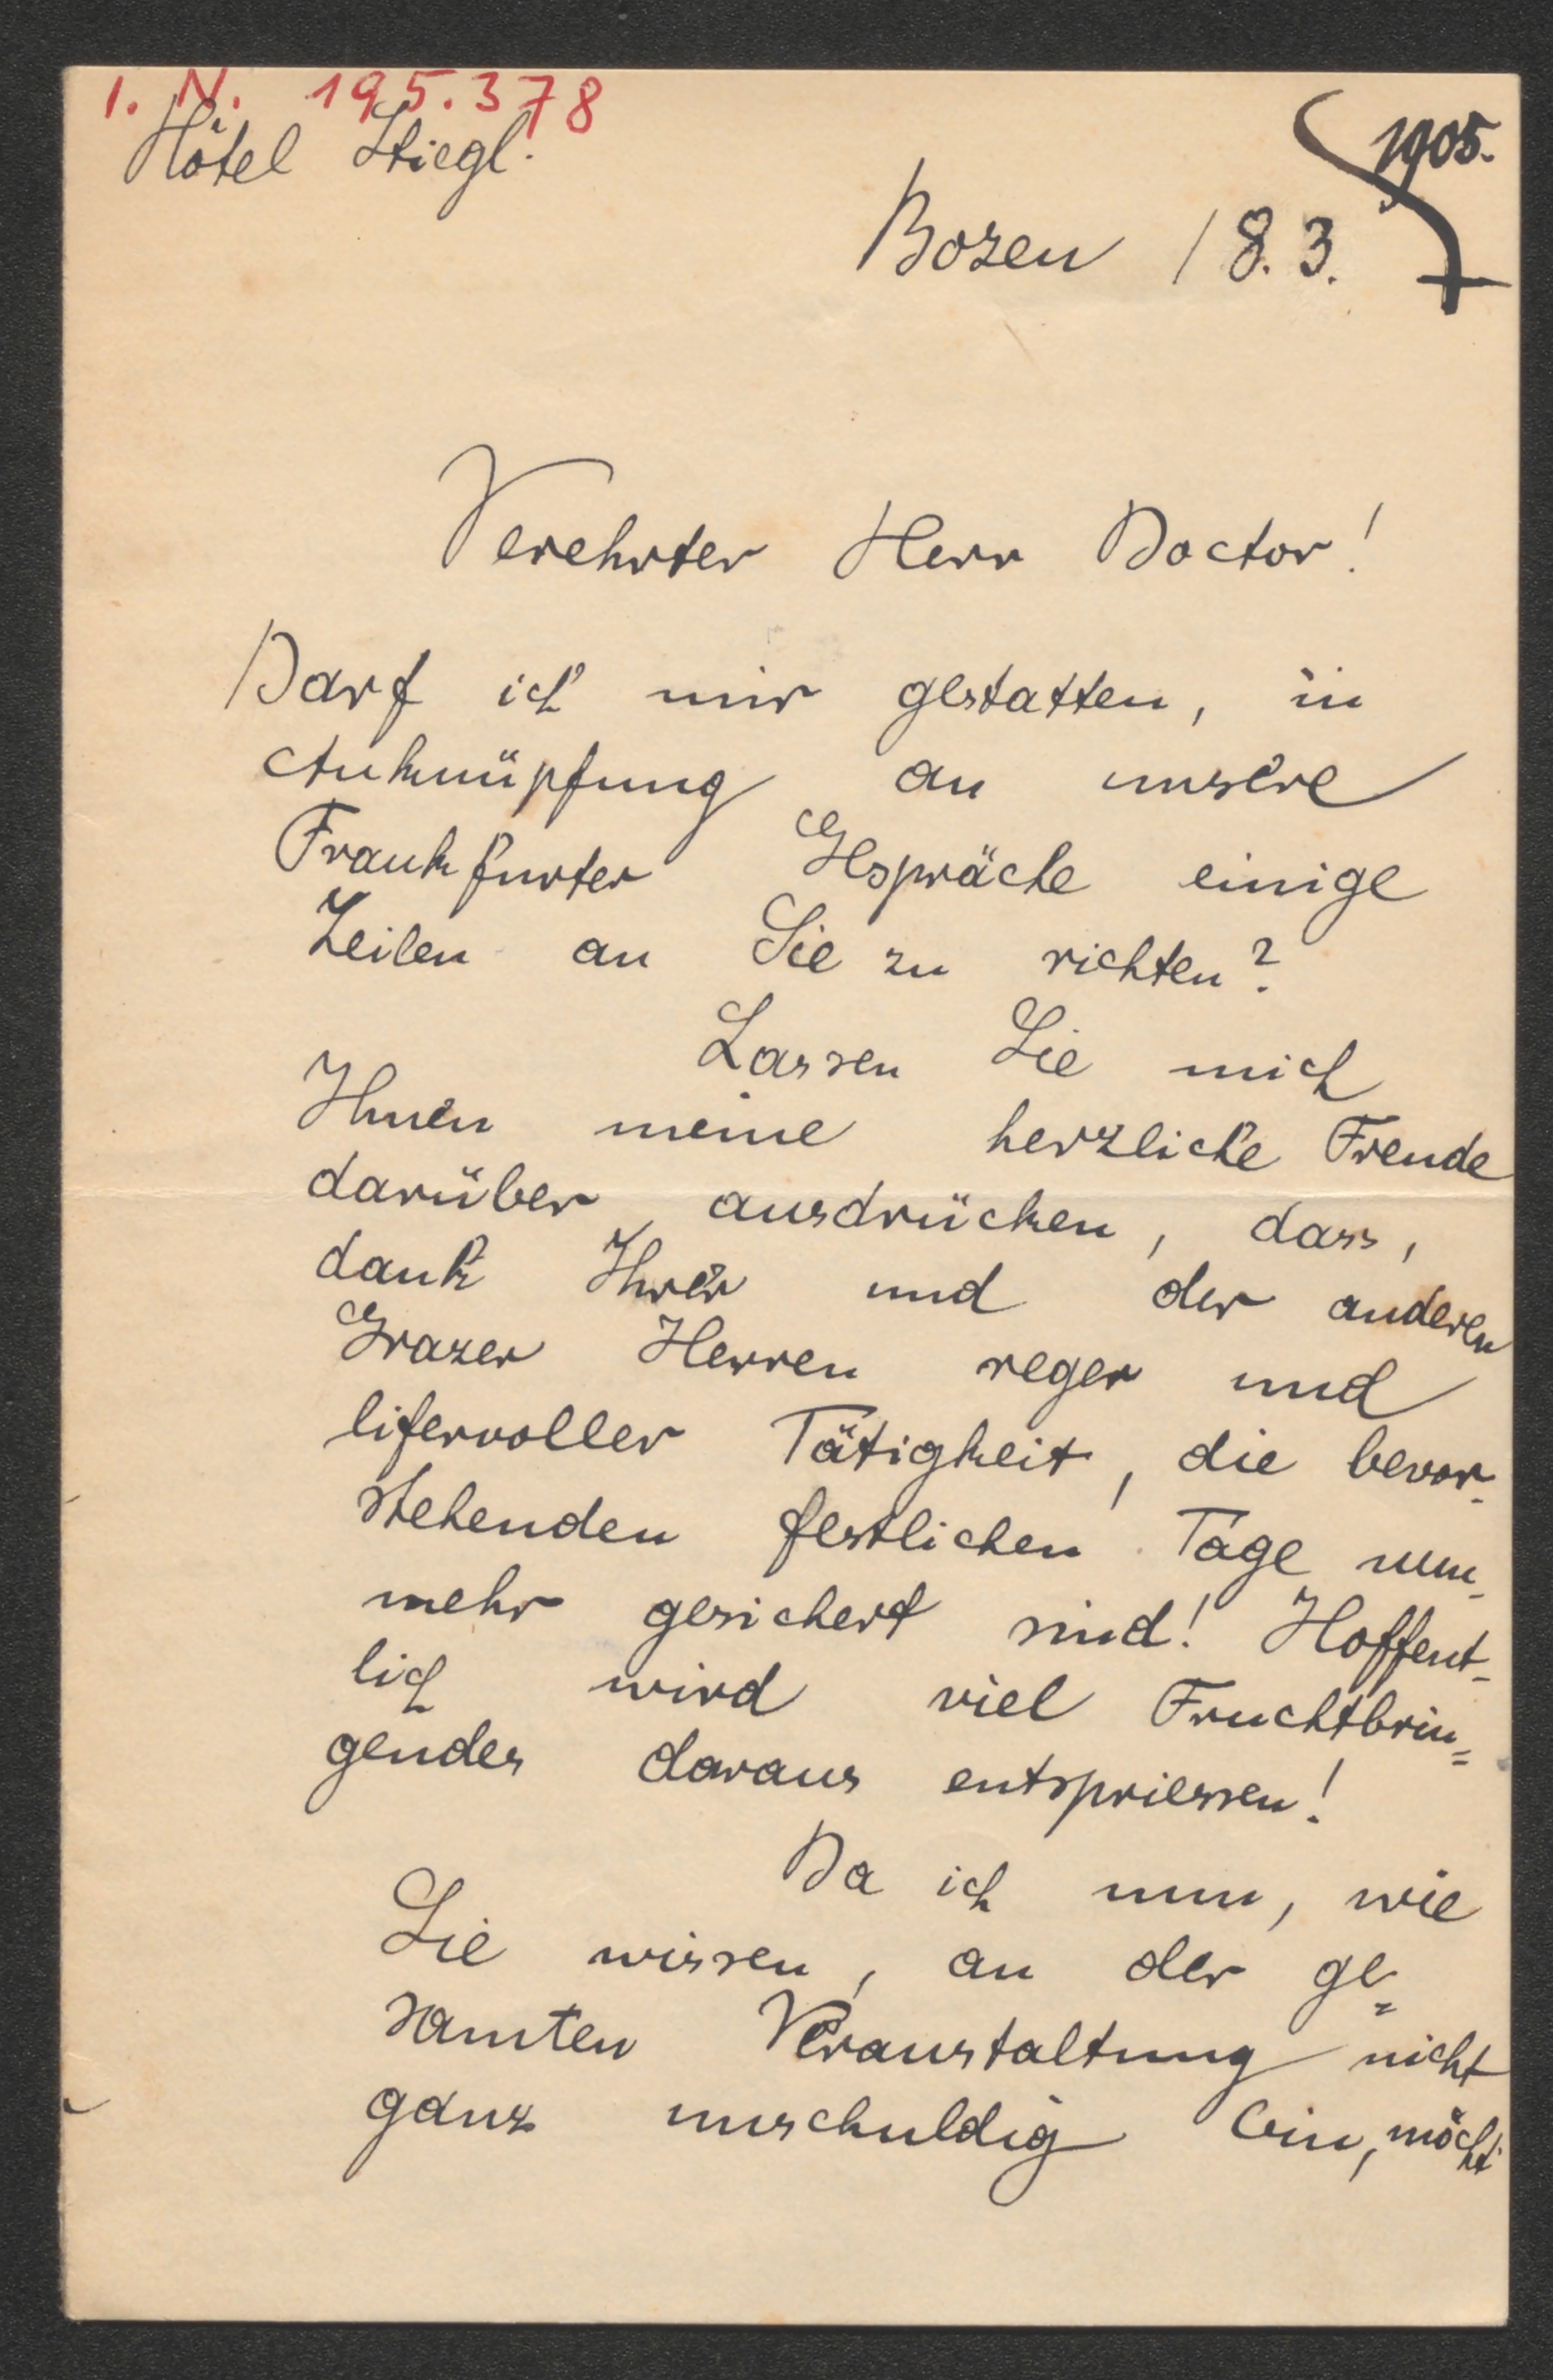 I. N. 195.378
Hôtel Stiegl.
1905.
Bozen 18.3.
Verehrter Herr Doctor!
Darf ich mir gestatten, in
Anknüpfung an unsere
Frankfurter Gespräche einige
Zeilen an Sie zu richten?
Lassen Sie mich
Ihnen meine herzliche Freude
darüber ausdrücken, dass,
dank Ihrer und der anderen
Grazer Herren reger und
eifervoller Tätigkeit, die bevor-
stehenden festlichen Tage nun-
mehr gesichert sind! Hoffent-
lich wird viel Fruchtbrin=
gendes daraus entspriessen!
Da ich nun, wie
Sie wissen, an der ge=
samten Veranstaltung nicht
ganz unschuldig bin, möcht